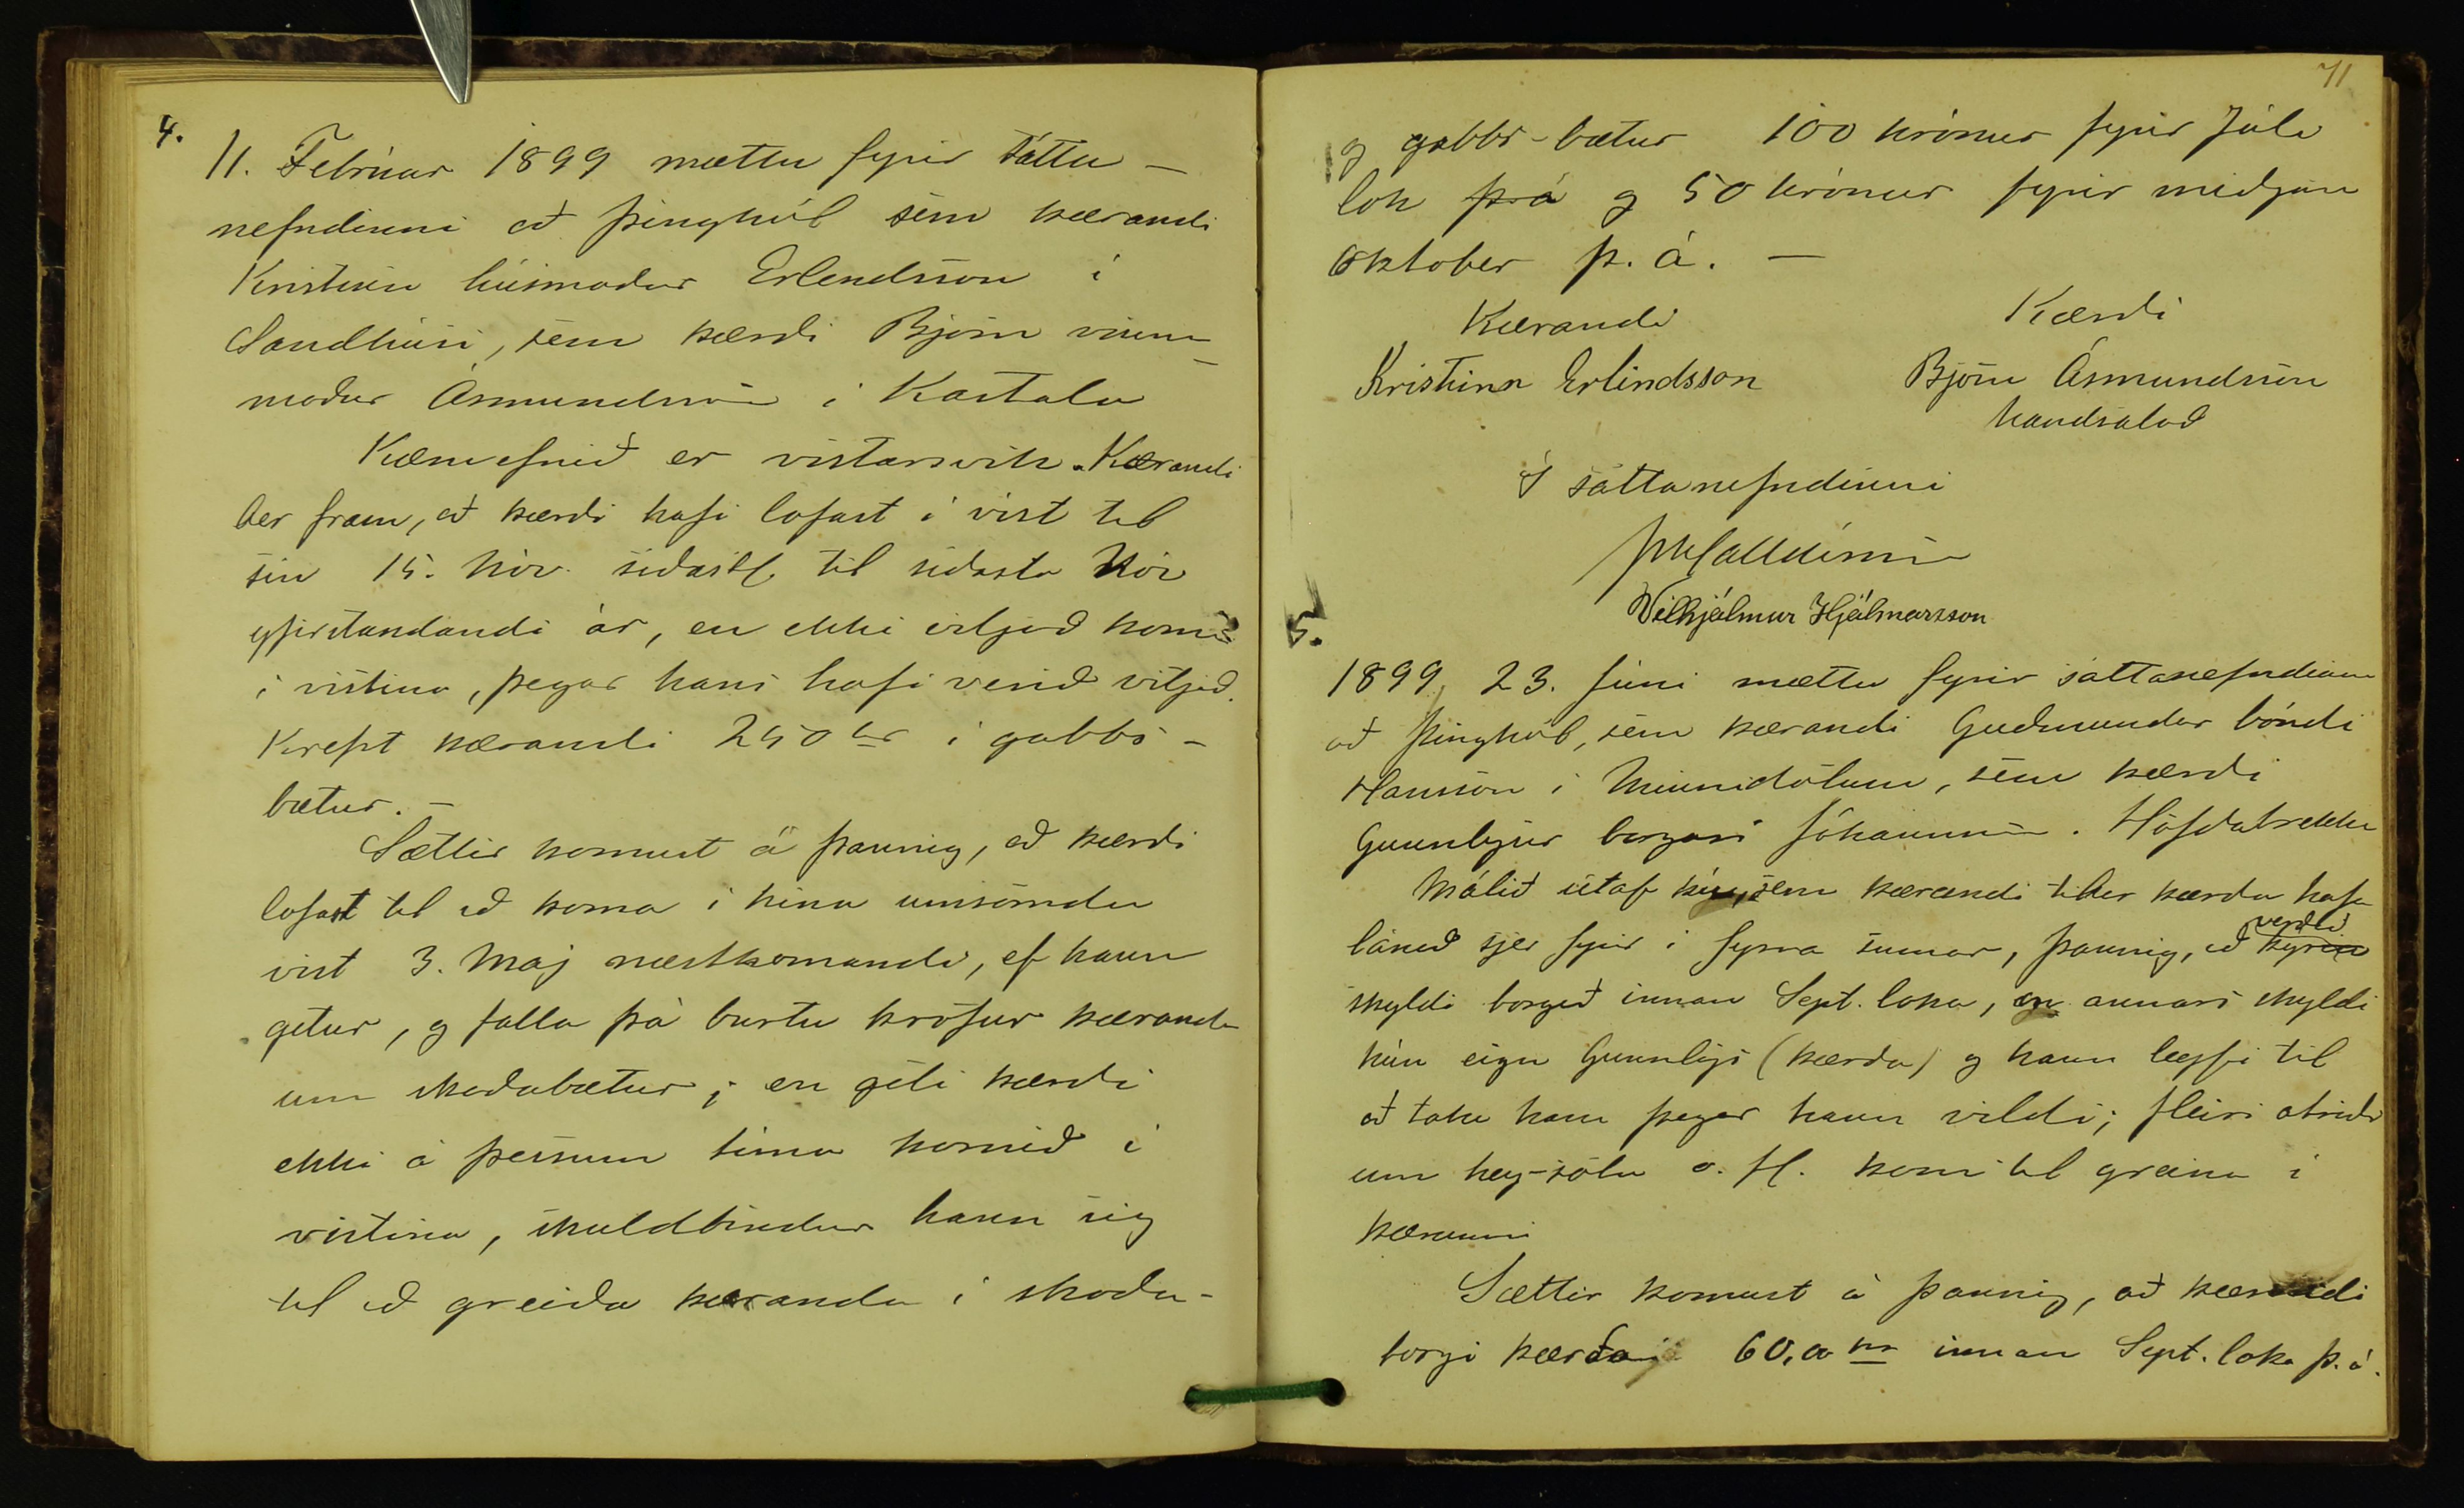 4.
11. Febrúar 1899 mættu fyrir sátta-
nefndinni að þinghól sem kærandi
Kristinn húsmaður Erlendsson í
Sandhúsi, sem kærði Björn vinnu-
maður Ásmundsson í Kastala
Kæruefnið er vistarsvik. Kærandi
ber fram, að kærði hafi lofast í vist til
sín 15. Nóv. síðastl. til síðasta Nóv
yfirstandandi ár, en ekki viljað koma
í vistina, þegar hans hafi verið vitjað.
Krefst kærandi 250 kr í gabbs-
bætur. -
Sættir komust á þannig, að kærði
lofast til að koma í hina umsömdu
vist 3. Maj næstkomandi, ef hann
getur, og falla þá burtu kröfur kæranda
um skaðabætur; en geti kærði
ekki á þessum tíma komið í
vistina, skuldbindur hann sig
til að greiða kæranda í skaða-
71
og gabbs-bætur 100 krónur fyrir Júlí
lok þ.á og 50 krónur fyrir miðjan
Október þ. á. -
Kærandi Kærði
Kristinn Erlindsson Björn Ásmundsson
handsalað
Í sáttanefndinni
Vilhjálmur Hjálmarsson
5.
1899, 23. Júni mættu fyrir sáttanefndinni
að þinghól, sem kærandi Guðmundur bóndi
Hansson í Minnidölum, sem kærði
Gunnlögur borgari Jóhannsson. Höfðabrekku
Málið útaf kú, sem kærandi telur kærða hafa
lánað sjer fyrir í fyrra sumar, þannig, að kýrin verðið
skyldi borgað innan Sept. loka, en annars skyldi
hún eign Gunnlögs (kærða) og hann leggja til
að taka hana þegar hann vildi; fleiri atriði
um hey-sölu o. fl. kom til greina í
kærunni
Sættir komust á þannig, að kærandi
borgi kærða 60,00 kr innan Sept. loka þ. á.